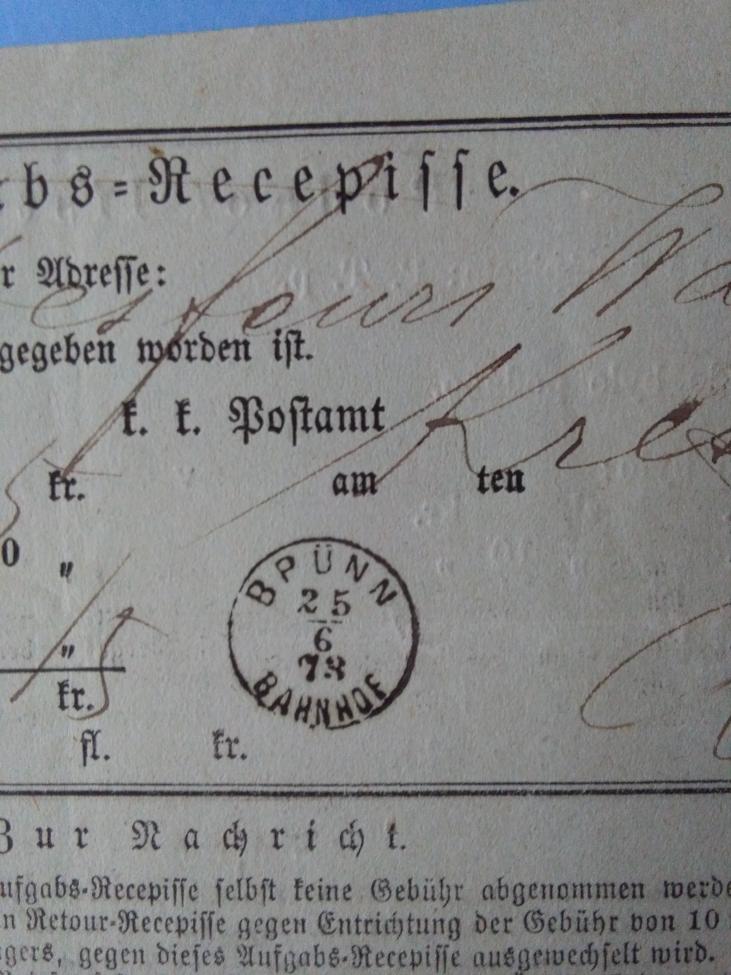 bs=Recepisse.
r Adresse:
gegeben worden ist.
k. k. Postamt
kr.
am
ten
0 "
"
kr.
fl. kr.
BPÜNN
25
6
73
BAHNHOF
Zur Nachricht.
ufgabs-Recepisse selbst keine Gebühr abgenommen werde
n Retour-Recepisse gegen Entrichtung der Gebühr von 10
gers, gegen dieses Aufgabs-Recepisse ausgewechselt wird.